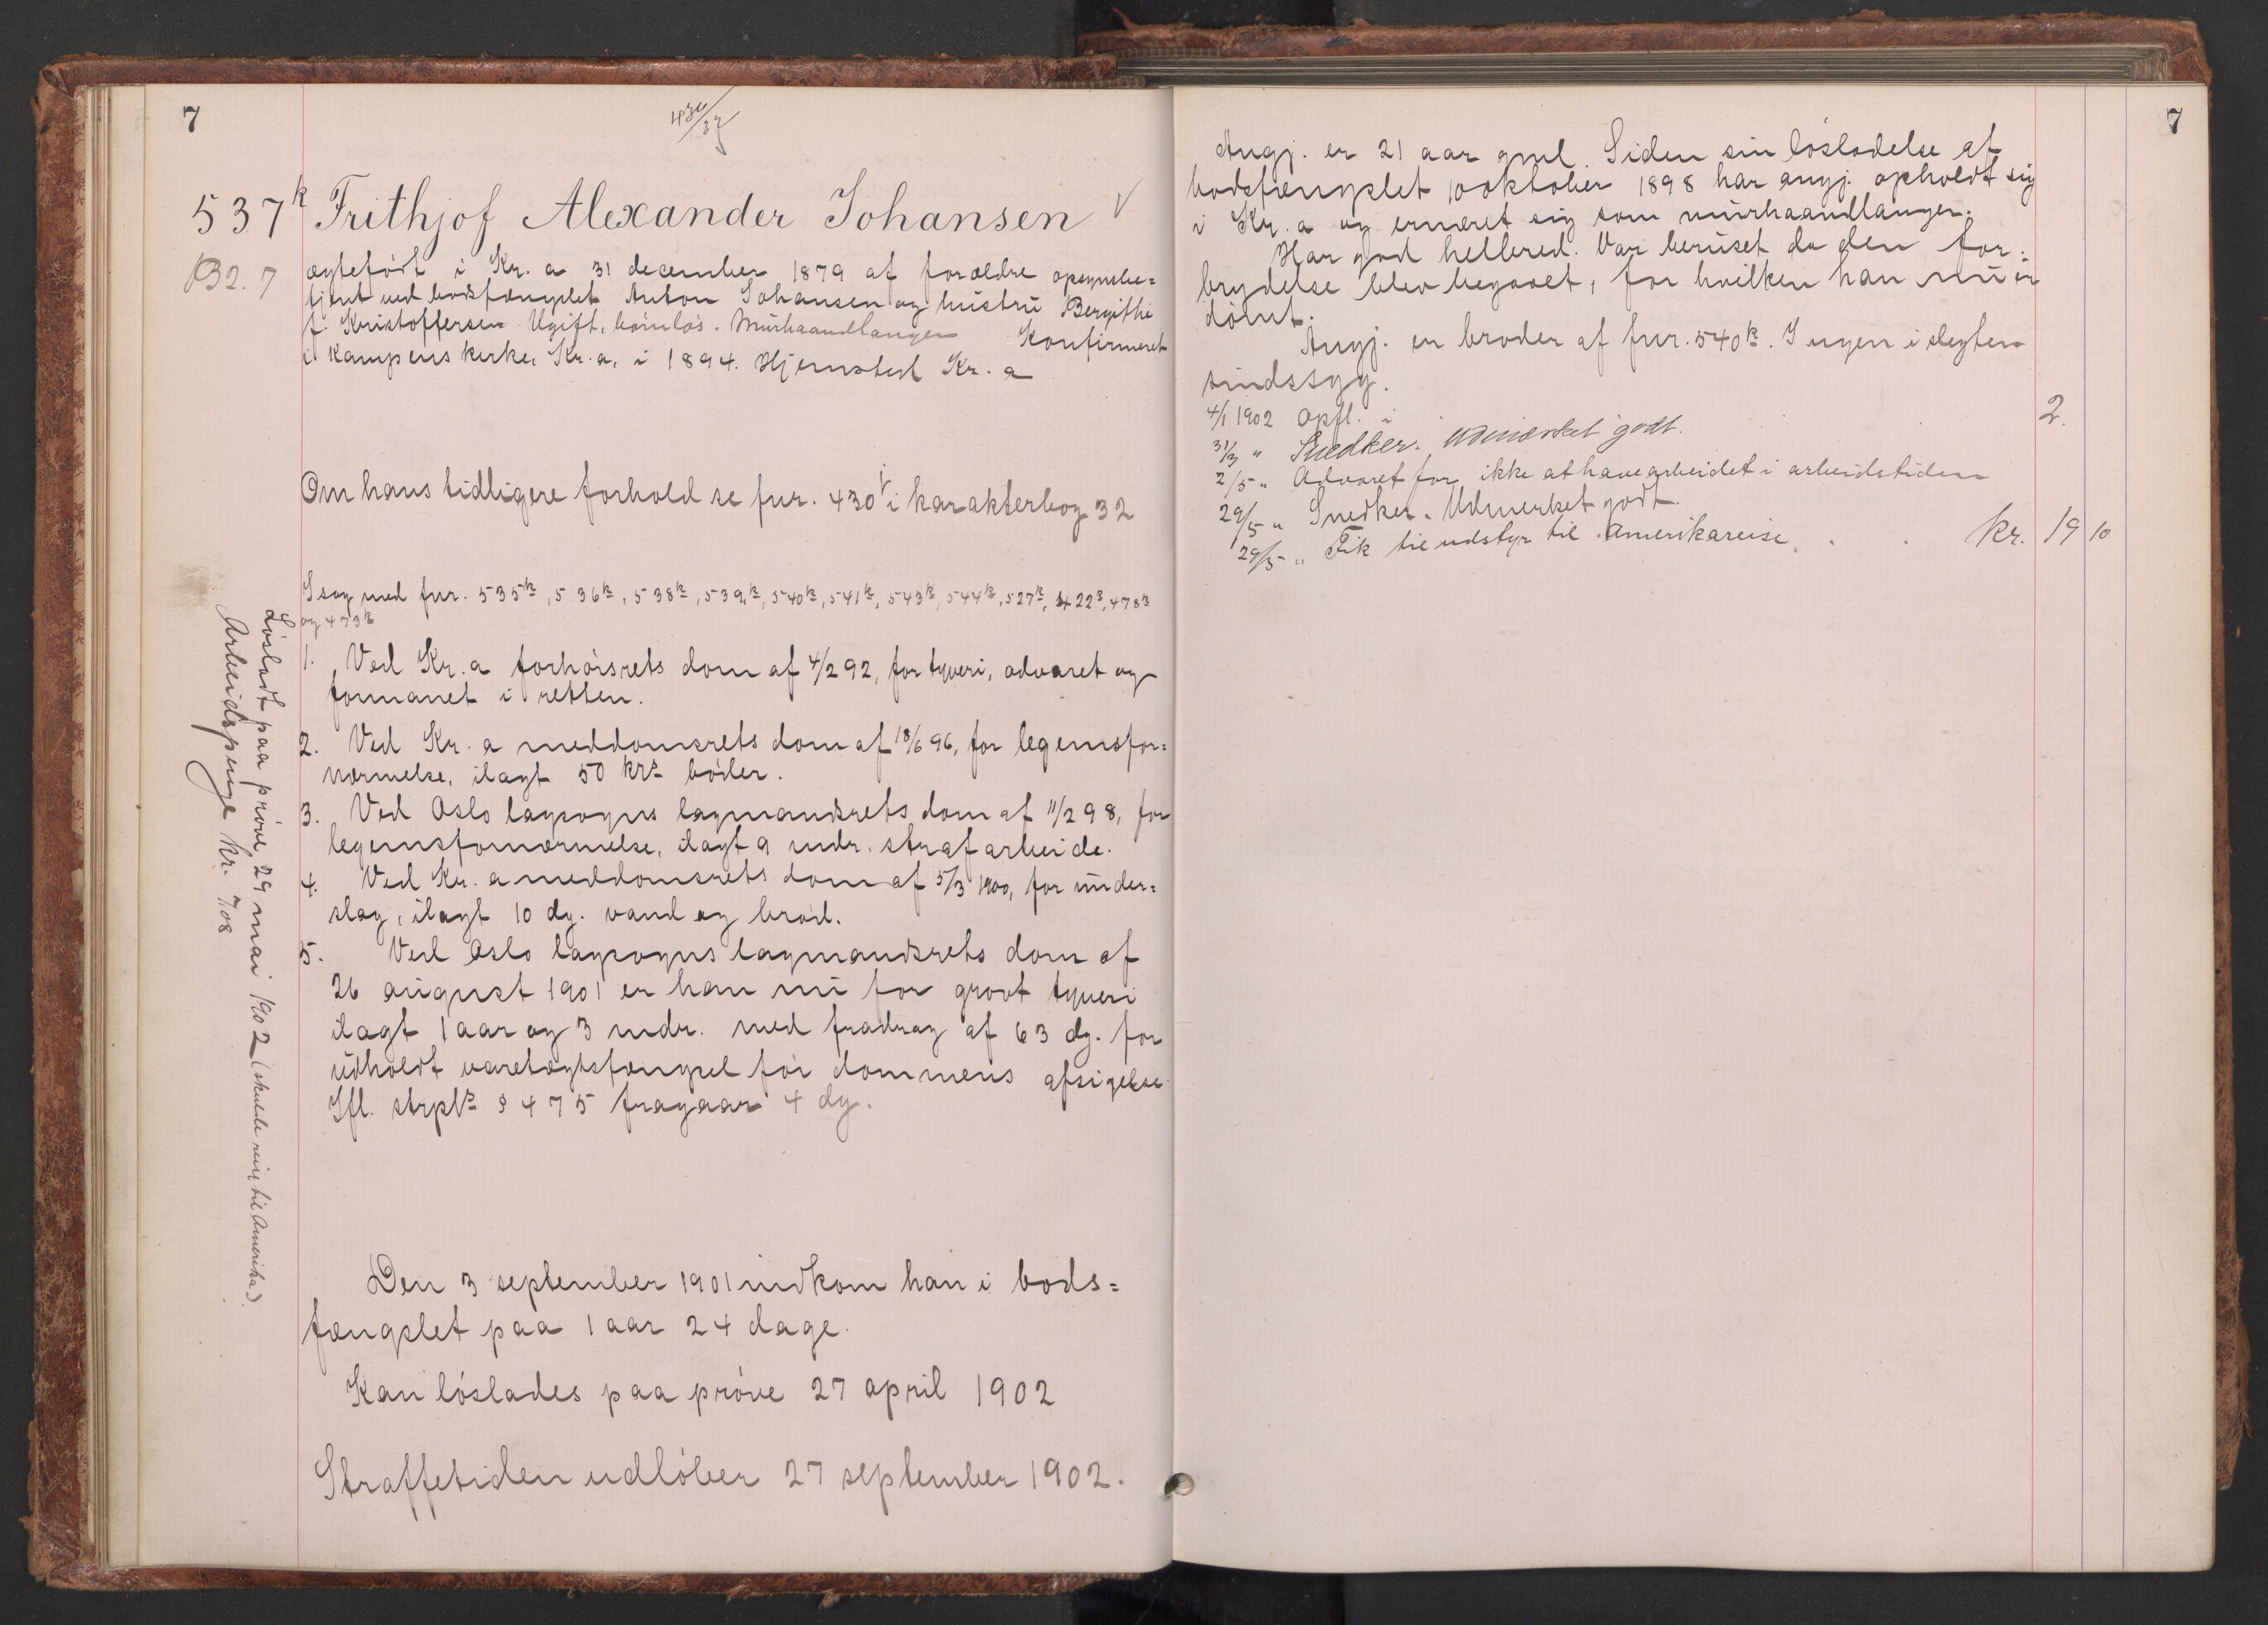 7
430/32
537k Frithjof Alexander Johansen
B2.7
ægtefødt i Kr.a 31 december 1879 af forældre opsynsbe=
tjent ved bodsfængslet Anton Johansen og hustru Bergithe
f. Kristoffersen Ugift, barnløs. Murhaandlanger Konfirmeret
i Kampens kirke, Kr.a, i 1894. Hjemsted Kr.a
Om hans tidligere forhold se fnr. 430i i karakterbog 32
I sag med fnr. 535k, 536k, 538k, 539k, 540k, 541k, 543k, 544k, 527k, 422k, 478k
og 473k
1. Ved Kr.a forhørsrets dom af 4/2 92, for tyveri, advaret og
formanet i retten.
2. Ved Kr.a meddomsrets dom af 18/6 96, for legemsfor=
nærmelse, ilagt 50 krs bøder.
3. Ved Oslo lagsogns lagmandsrets dom af 11/2 98, for
legemsfornærmelse, ilagt 9 mdr. strafarbeide.
4. Ved Kr.a meddomsrets dom af 5/3 1900, for under=
slag, ilagt 10 dg. vand og brød.
5. Ved Oslo lagsogns lagmandsrets dom af
26 august 1901 er han nu for grovt tyveri
ilagt 1 aar og 3 mdr. med fradrag af 63 dg. for
udholdt varetægtsfængsel før dommens afsigelse
Ifl. strpls § 475 fragaar 4 dg.
Den 3 september 1901 indkom han i bods=
fængslet paa 1 aar 24 dage.
Kan løslades paa prøve 27 april 1902
Straffetiden udløber 27 september 1902.
Løsladt paa prøve 29 mai 1902 (skulde reise til Amerika).
Arbeidspenge kr. 7 08
7
Angj. er 21 aar gml. Siden sin løsladelse af
bodsfængslet 10 oktober 1898 har angj. opholdt sig
i Kr.a og ernæret sig som murhaandlanger.
Har god helbred. Var beruset da den for=
brydelse blev begaaet, for hvilken han nu er
dømt.
Angj. er broder af fnr. 540k. Ingen i slegten
sindssyg.
4/1 1902 Opfl. i 2.
31/3 " Snedker. Udmærket godt.
2/5 " Advaret for ikke at have arbeidet i arbeidstiden
29/5 " Snedker. Udmerket godt.
29/5 " Fik til udstyr til Amerikareise . . Kr. 19 10